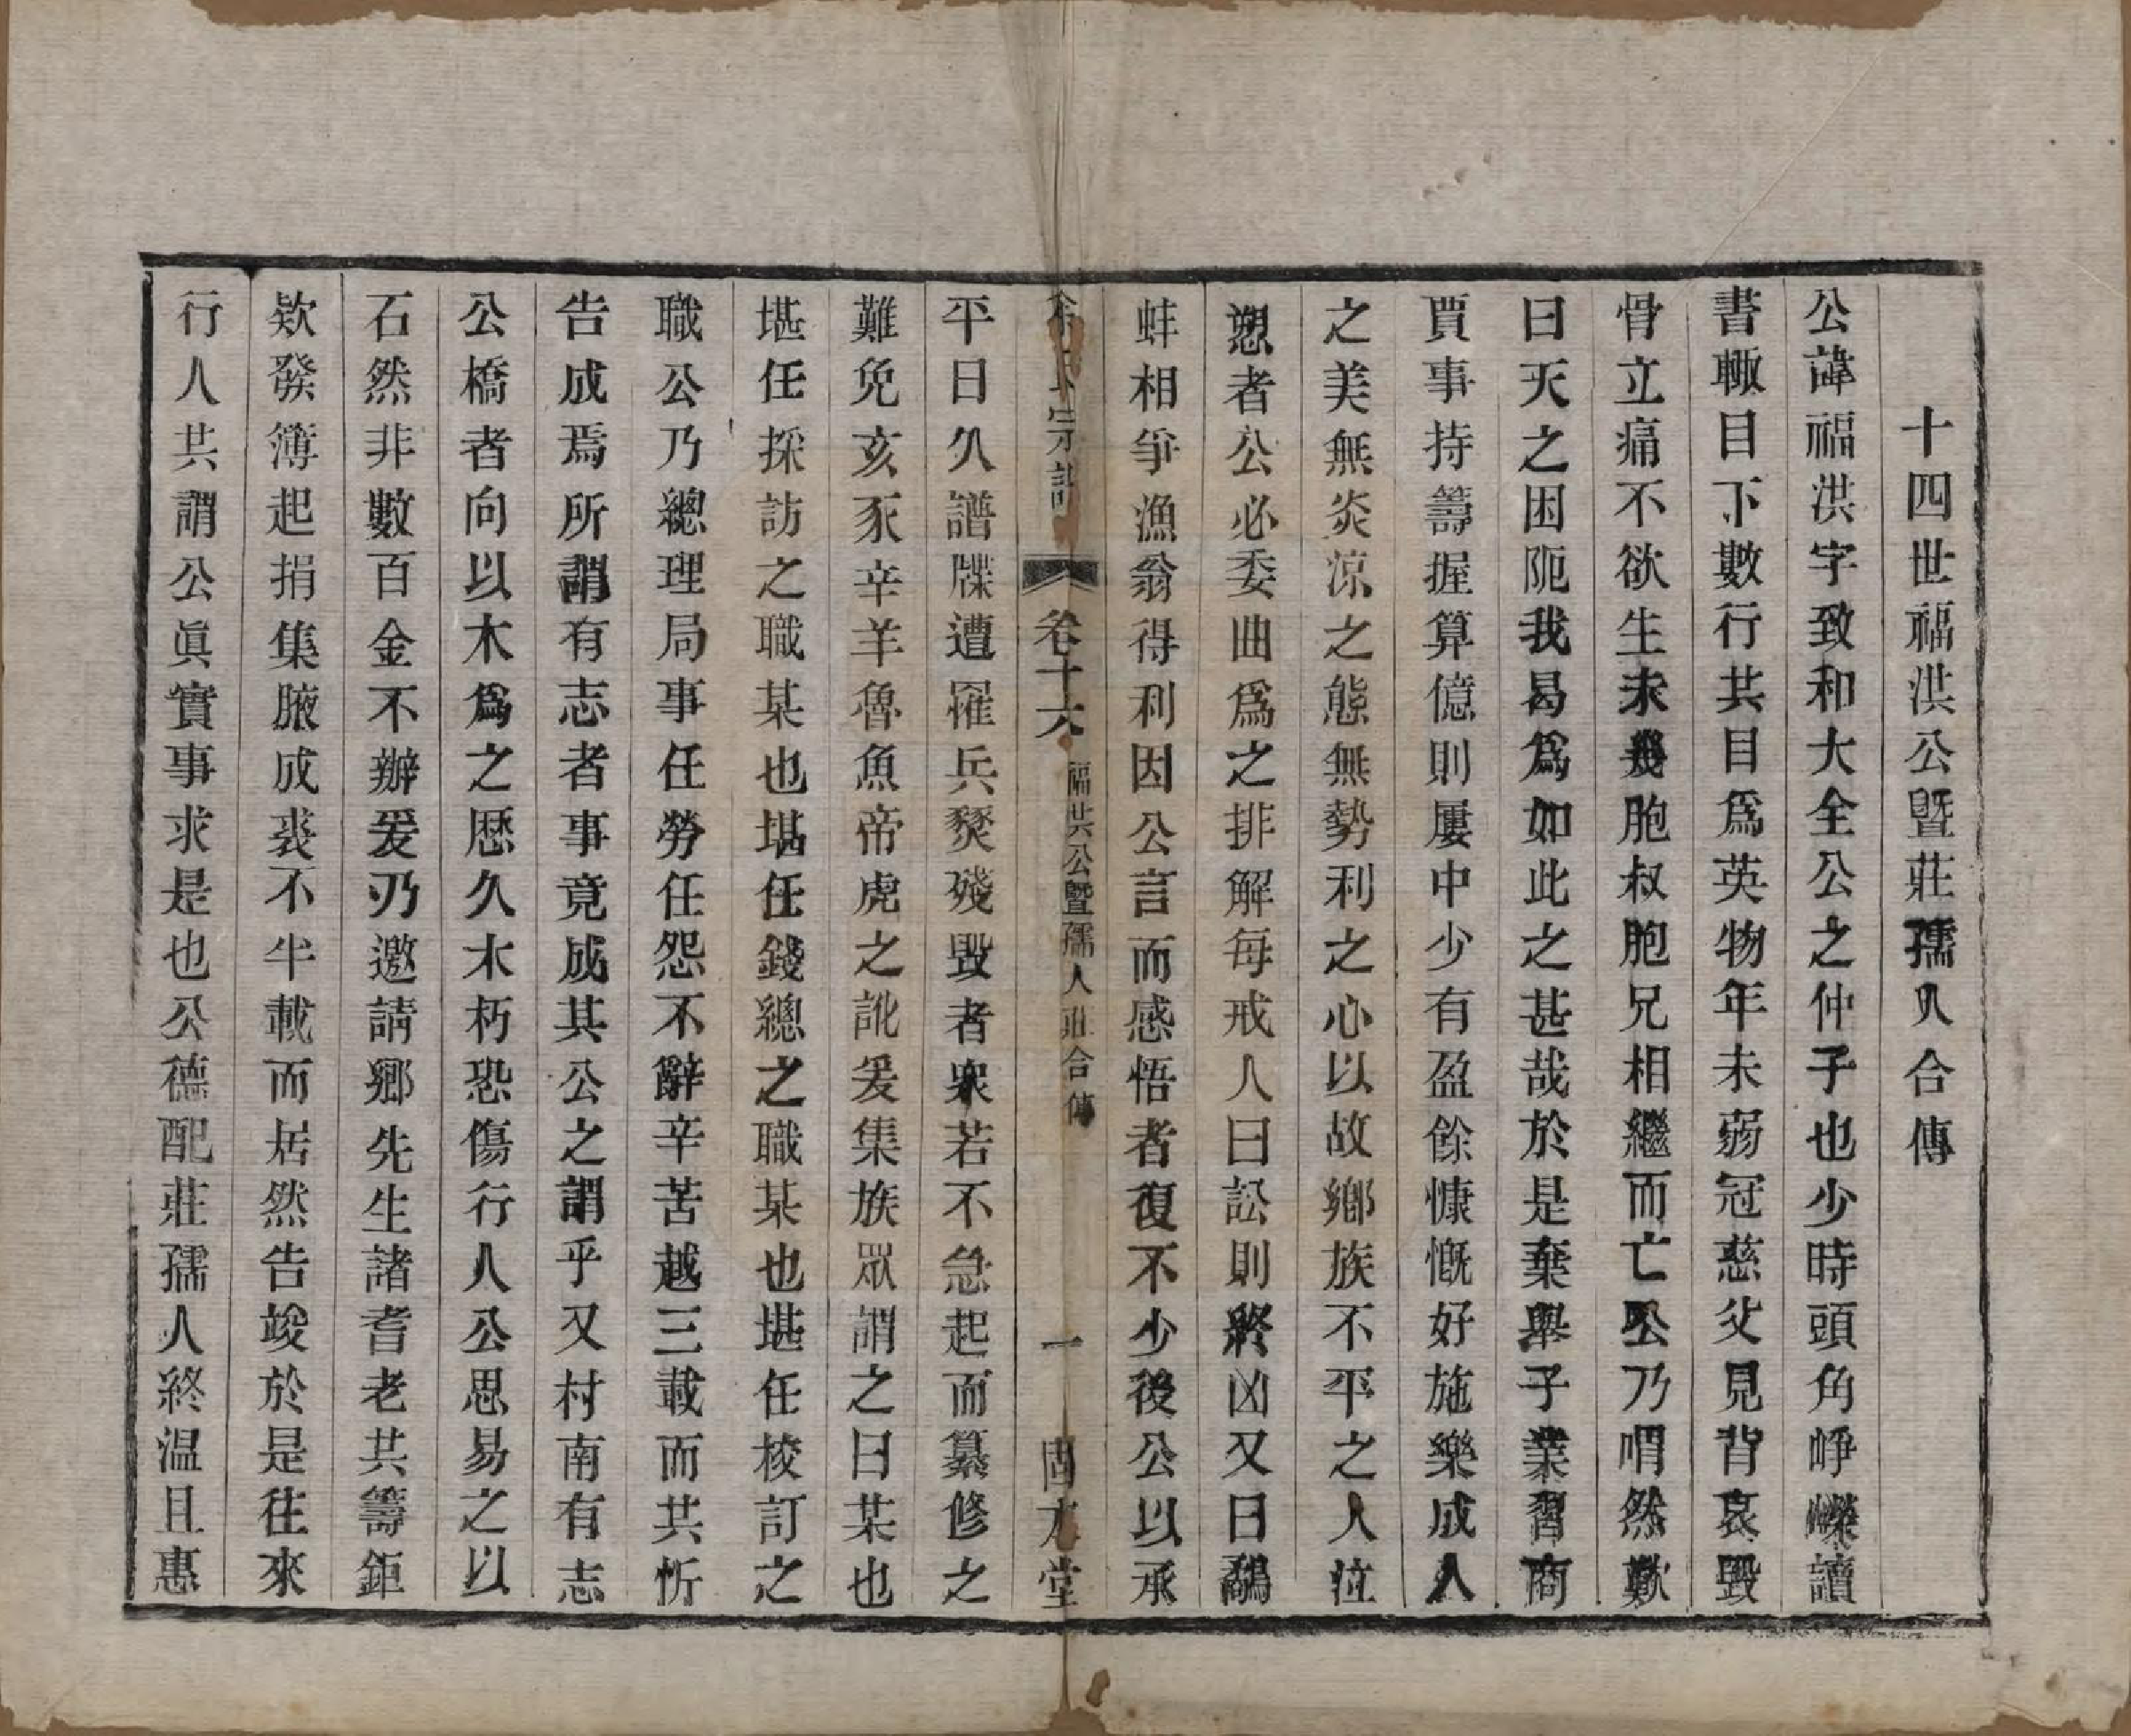 十四世福洪公暨莊孺人合傳
公諱福洪字致和大全公之仲子也少時頭角崢嶸讀
書輙目下數行共目爲英物年未弱冠慈父見背哀毀
骨立痛不欲生未幾胞叔胞兄相繼而亡公乃喟然歎
曰天之困阨我曷爲如此之甚哉於是棄舉子業習商
賈事持籌握算億則屢中少有盈餘慷慨好施樂成人
之美無炎涼之態無勢利之心以故鄉族不平之人泣
愬者公必委曲爲之排解每戒人曰訟則終凶又曰鷸
蚌相爭漁翁得利因公言而感悟者復不少後公以承
氏宗譜 卷十六 福洪公暨孺人莊合傳 一 固本堂
平日久譜牒遭罹兵燹殘毀者衆若不急起而纂修之
難免亥豕辛羊魯魚帝虎之訛爰集族眾謂之曰某也
堪任採訪之職某也堪任錢總之職某也堪任校訂之
職公乃總理局事任勞任怨不辭辛苦越三載而共忻
告成焉所謂有志者事竟成其公之謂乎又村南有志
公橋者向以木爲之歷久木朽恐傷行人公思易之以
石然非數百金不辦爰乃邀請鄉先生諸耆老共籌鉅
欵發簿起捐集腋成裘不半載而居然告竣於是往來
行人共謂公眞實事求是也公德配莊孺人終温且惠